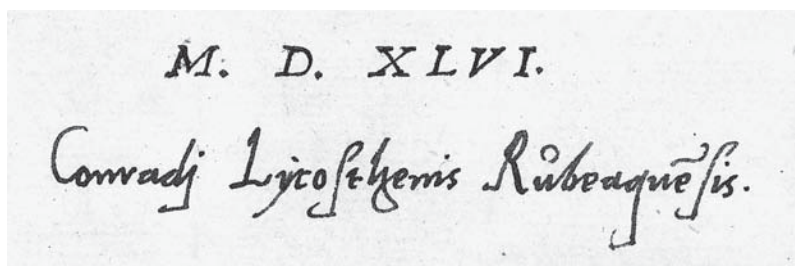 M. D. XLVI.
Conradj Lycosthenis Růbeaquēsis.